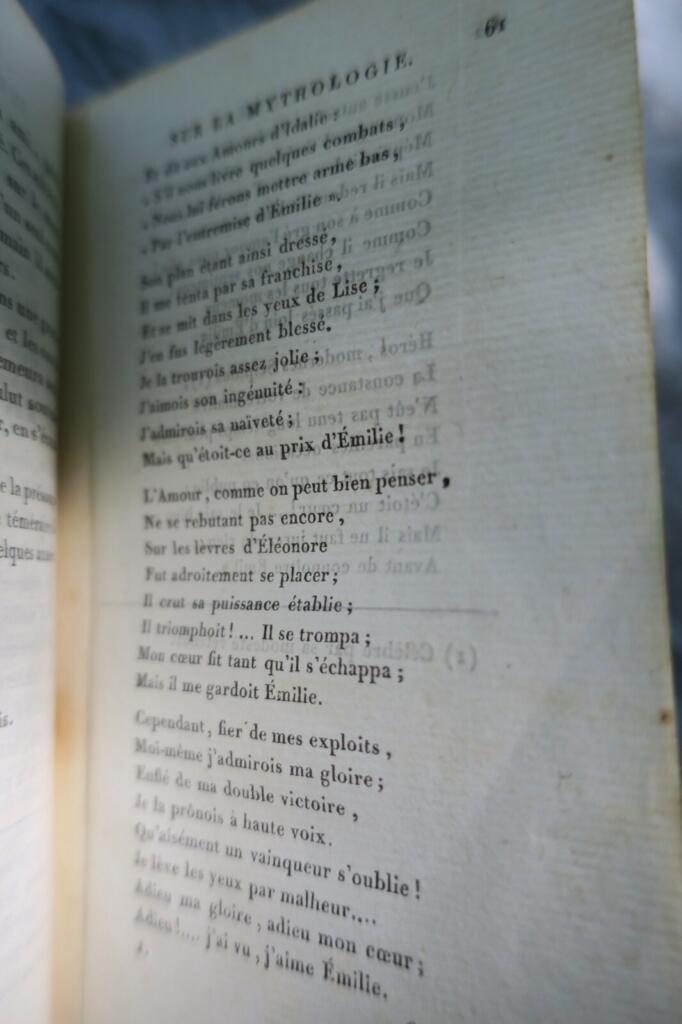 61
SUR LA MYTHOLOGIE.
Et dit aux Amours d'Idalie :
« S'il nous livre quelques combats,
« Nous lui ferons mettre arme bas,
« Par l'entremise d'Émilie ».
Son plan étant ainsi dressé,
Il me tenta par sa franchise,
Et se mit dans les yeux de Lise ;
J'en fus légèrement blessé.
Je la trouvois assez jolie ;
J'aimois son ingénuité ;
J'admirois sa naïveté ;
Mais qu'étoit-ce au prix d'Émilie !
L'Amour, comme on peut bien penser,
Ne se rebutant pas encore,
Sur les lèvres d'Éléonore
Fut adroitement se placer ;
Il crut sa puissance établie ;
Il triomphoit ! ... Il se trompa ;
Mon cœur fit tant qu'il s'échappa ;
Mais il me gardoit Émilie.
Cependant, fier de mes exploits,
Moi-même j'admirois ma gloire ;
Enflé de ma double victoire,
Je la prônois à haute voix.
Qu'aisément un vainqueur s'oublie !
Je lève les yeux par malheur....
Adieu ma gloire, adieu mon cœur ;
Adieu !.... j'ai vu, j'aime Émilie.